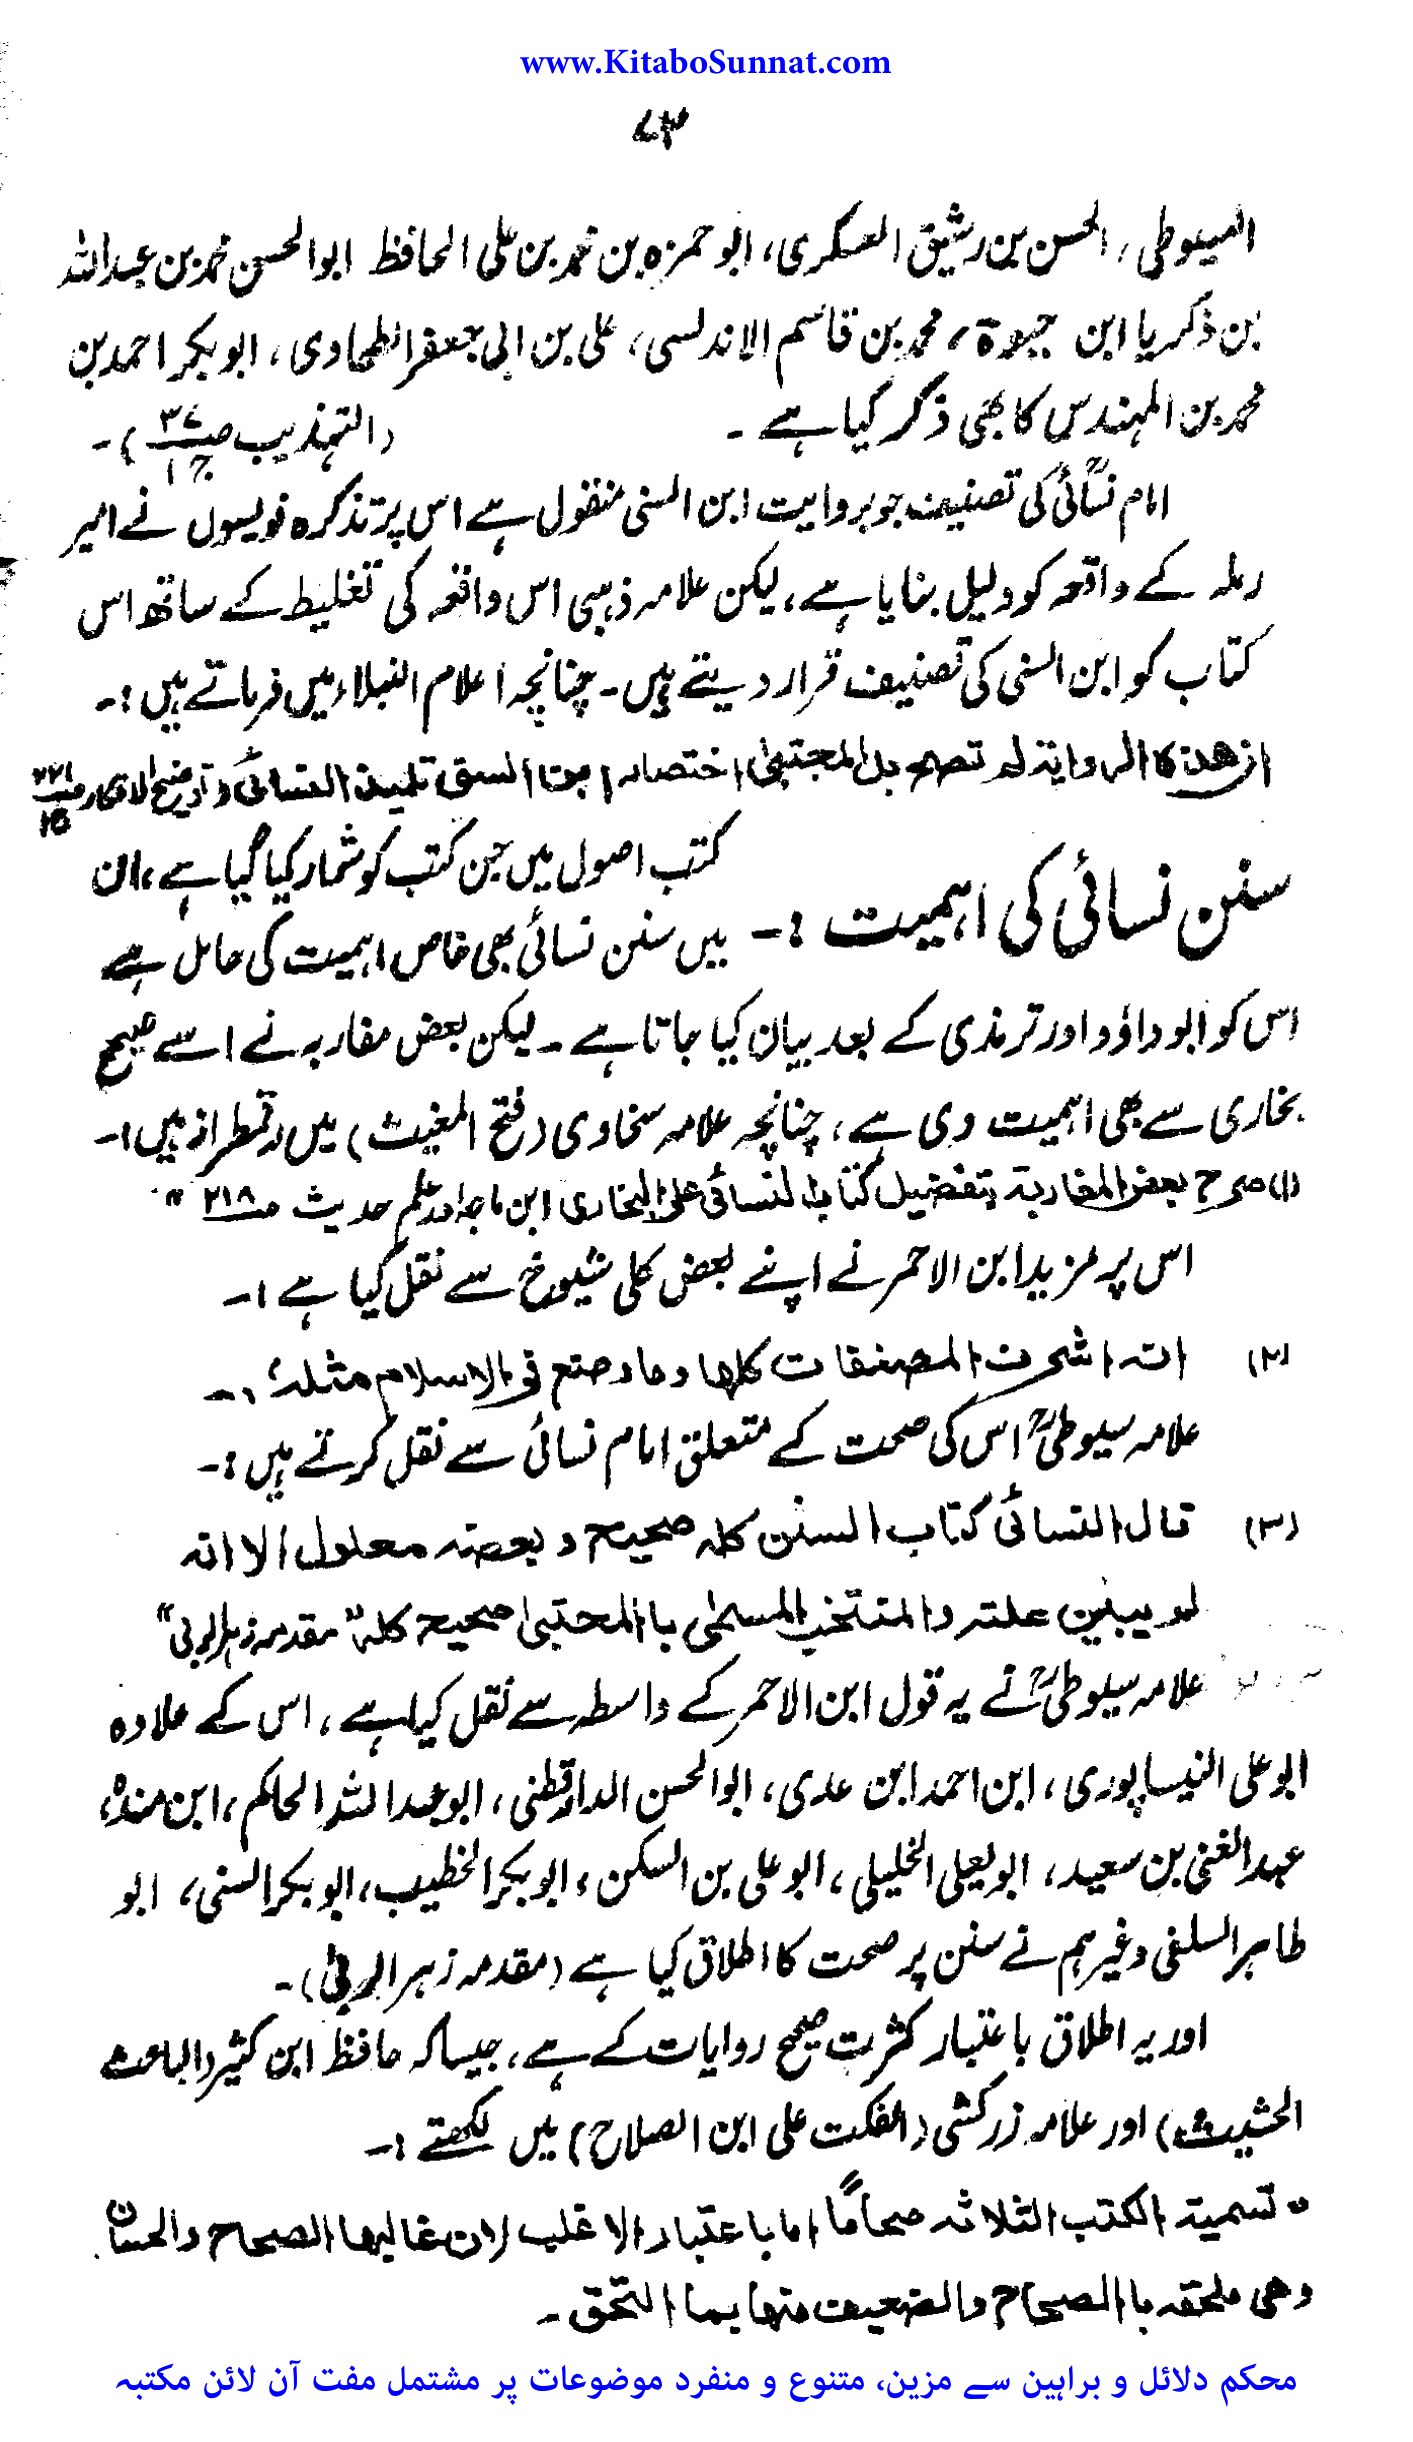 www.KitaboSunnat.com
۷۳
السیوطی، الحسن بن رشیق العسکری، ابو حمزہ بن محمد بن علی الحافظ ابوالحسن محمد بن عبداللہ
بن ذکریا ابن حیوۃ، محمد بن قاسم الاندلسی، علی بن ابی جعفر الطحاوی، ابوبکر احمد بن
محمد بن المہندس کا بھی ذکر کیا ہے ۔ (التہذیب ص ۳۷ ج ۱)۔
امام نسائیؒ کی تصنیف جو بروایت ابن السنی منقول ہے اس پر تذکرہ نویسوں نے امیر
رملہ کے واقعہ کو دلیل بنایا ہے، لیکن علامہ ذہبی اس واقعہ کی تغلیط کے ساتھ اس
کتاب کو ابن السنی کی تصنیف قرار دیتے ہیں۔ چنانچہ اعلام النبلاء میں فرماتے ہیں :۔
ان ھذہ الروایة لم تصح بل المجتبیٰ اختصار ابن السنی تلمیذ النسائی توضیح الافکار ص ۲۲۱ ج ۱
سنن نسائی کی اہمیت :۔ کتب اصول میں جن کتب کو شمار کیا گیا ہے، ان
میں سنن نسائی بھی خاص اہمیت کی حامل ہے
اس کو ابوداؤد اور ترمذی کے بعد بیان کیا جاتا ہے ۔ لیکن بعض مغاربہ نے اسے صحیح
بخاری سے بھی اہمیت دی ہے، چنانچہ علامہ سخاوی (فتح المغیث) میں رقمطراز ہیں :۔
(۱) صرح بعض المغاربة بتفضیل کتاب النسائی علی البخاری ابن ماجہ اور علم حدیث ص ۲۱۸ "
اس پر مزید ابن الاحمر نے اپنے بعض مکی شیوخ سے نقل کیا ہے :۔
(۲) انه اشرف المصنفات کلها وما وضع فی الاسلام مثلهٗ :۔
علامہ سیوطیؒ اس کی صحت کے متعلق امام نسائی سے نقل کرتے ہیں :۔
(۳) قال النسائی کتاب السنن کله صحیح و بعضه معلول الا انه
لم یبین علته والمنتخب المسمّٰی باالمجتبیٰ صحیح کله" مقدمہ زہر الربی"
علامہ سیوطیؒ نے یہ قول ابن الاحمر کے واسطہ سے نقل کیا ہے، اس کے علاوہ
ابو علی النیسا پوری، ابن احمد ابن عدی، ابوالحسن الدارقطنی، ابو عبد اللہ الحاکم، ابن مندہ،
عبدالغنی بن سعید، ابو یعلی الخلیلی، ابو علی بن السکن، ابوبکر الخطیب، ابو بکر السنی، ابو
طاہر السلفی وغیرہم نے سنن پر صحت کا اطلاق کیا ہے (مقدمہ زہر الربیٰ)۔
اور یہ اطلاق باعتبار کثرت صحیح روایات کے ہے، جیسا کہ حافظ ابن کثیر (الباعث
الحثیث) اور علامہ زرکشی (النکت علی ابن الصلاح) میں لکھتے :۔
" تسمیة الکتب الثلاثه صحاحًا اما باعتبار الاغلب لان غالبها الصحاح والحسان
وهی ملحقه باالصحاح والضعیف منها بما التحق ۔
محکم دلائل و براہین سے مزین، متنوع و منفرد موضوعات پر مشتمل مفت آن لائن مکتبہ